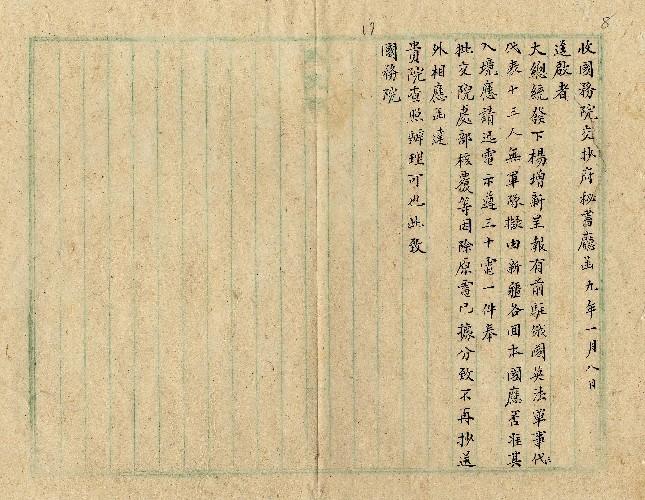 8
17
收國務院交抄府秘書廳函九年一月八日
逕啟者
大總統發下楊增新呈報有前駐俄國英法軍事代
代表十三人無軍隊擬由新疆各回本國應否准其
入境應請迅電示遵三十電一件奉
批交院處部核覆等因除原電已據分致不再抄送
外相應函達
貴院查照辦理可也此致
國務院